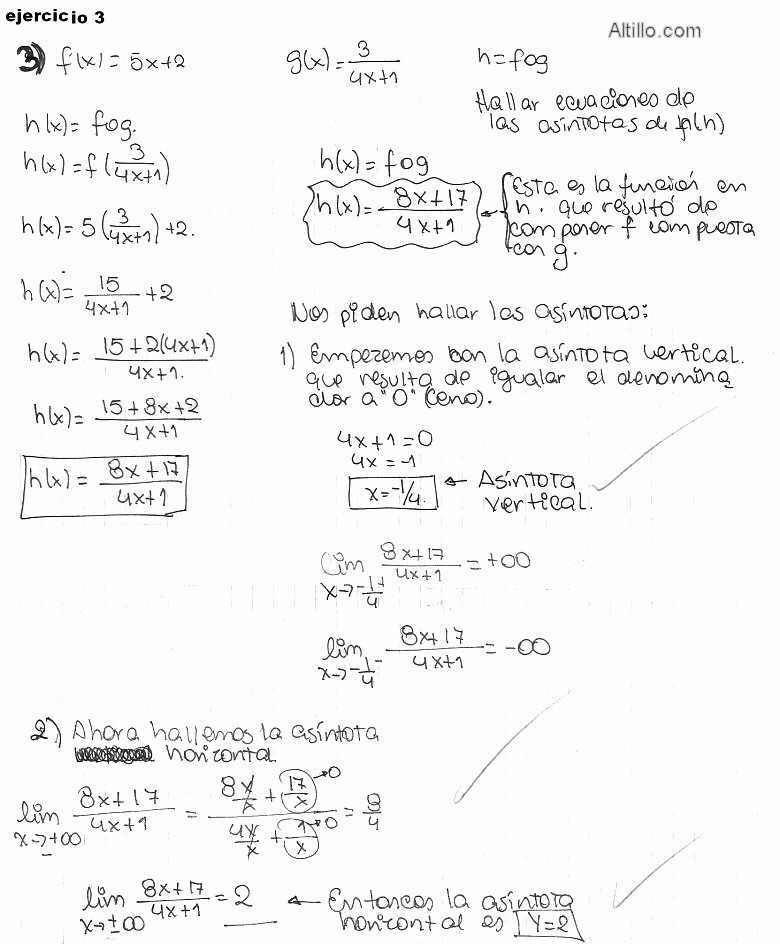 ejercicio 3
Altillo.com
3) f(x) = 5x+2
g(x) = 3/(4x+1)
h = fog
Hallar ecuaciones de
las asíntotas de (h)
h(x) = fog.
h(x) = f(3/(4x+1))
h(x) = 5(3/(4x+1)) +2.
h(x) = 15/(4x+1) + 2
h(x) = (15+2(4x+1))/(4x+1).
h(x) = (15+8x+2)/(4x+1)
h(x) = (8x+17)/(4x+1)
h(x) = fog
h(x) = (8x+17)/(4x+1)
Esta es la función en
h. que resultó de
componer f compuesta
con g.
Nos piden hallar las asíntotas:
1) Empezemos con la asíntota vertical.
que resulta de igualar el denomina
dor a "0" (cero).
4x+1=0
4x = -1
x = -1/4. ← Asíntota
vertical.
lim x→-1/4+ (8x+17)/(4x+1) = +∞
lim x→-1/4- (8x+17)/(4x+1) = -∞
2) Ahora hallemos la asíntota
horizontal.
lim x→±∞ (8x+17)/(4x+1) = (8x/x + 17/x →0)/(4x/x + 1/x →0) = 8/4
lim x→±∞ (8x+17)/(4x+1) = 2 ← Entonces la asíntota
horizontal es Y=2